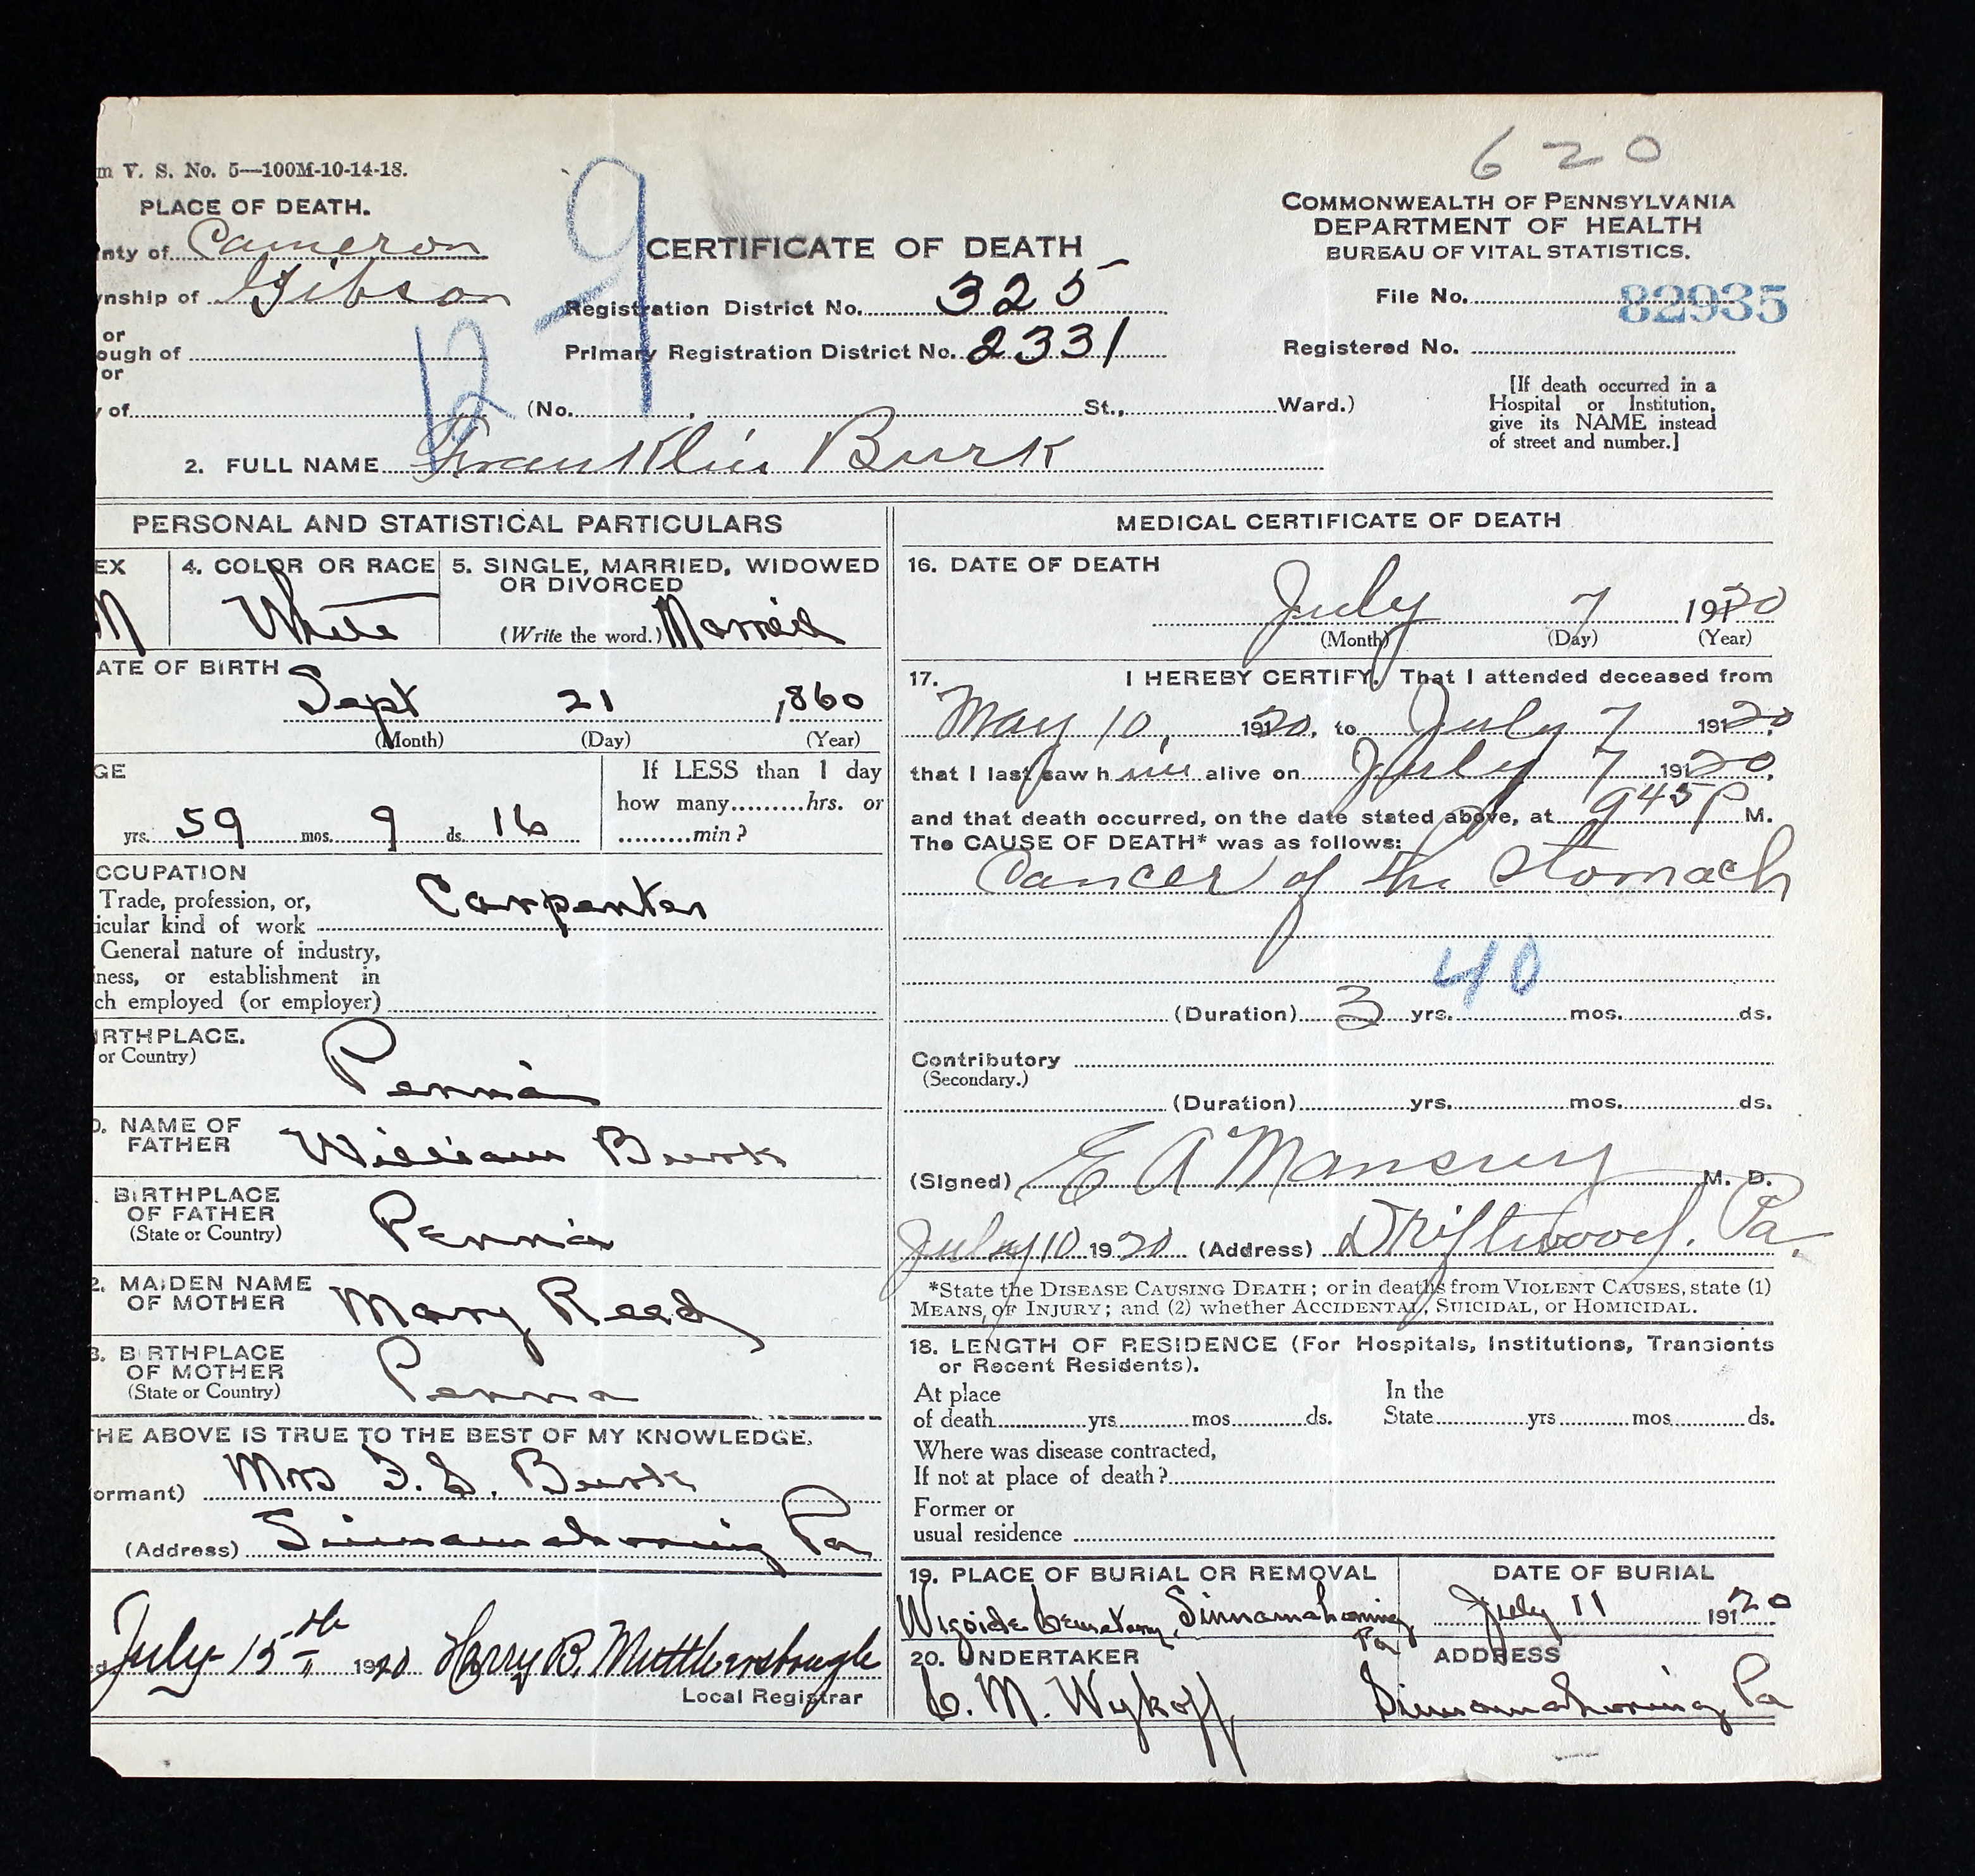 620
m V. S. No. 5—100M-10-14-18.
PLACE OF DEATH.
nty of Cameron
nship of Gibson
or
ough of
or
of
9
12
CERTIFICATE OF DEATH
Registration District No. 325
Primary Registration District No. 2331
(No. , St., Ward.)
COMMONWEALTH OF PENNSYLVANIA
DEPARTMENT OF HEALTH
BUREAU OF VITAL STATISTICS.
File No. 82935
Registered No.
[If death occurred in a
Hospital or Institution,
give its NAME instead
of street and number.]
2. FULL NAME Franklin Burk
PERSONAL AND STATISTICAL PARTICULARS
EX
M
4. COLOR OR RACE
White
5. SINGLE, MARRIED, WIDOWED
OR DIVORCED
(Write the word.) Married
ATE OF BIRTH
Sept 21 , 1860
(Month) (Day) (Year)
GE
yrs. 59 mos. 9 ds. 16
If LESS than 1 day
how many hrs. or
min?
CCUPATION
Trade, profession, or,
icular kind of work Carpenter
General nature of industry,
iness, or establishment in
ch employed (or employer)
IRTHPLACE.
or Country)
Penna
NAME OF
FATHER
William Burk
BIRTHPLACE
OF FATHER
(State or Country)
Penna
2. MAIDEN NAME
OF MOTHER
Mary Reed
3. BIRTHPLACE
OF MOTHER
(State or Country)
Penna
HE ABOVE IS TRUE TO THE BEST OF MY KNOWLEDGE.
ormant) Mrs F. S. Burk
(Address) Sinnamahoning Pa
ed July 15th 1920 Harry B. Muthersbaugh
Local Registrar
MEDICAL CERTIFICATE OF DEATH
16. DATE OF DEATH
July 7 1920
(Month) (Day) (Year)
17. I HEREBY CERTIFY, That I attended deceased from
May 10, 1920, to July 7 1920,
that I last saw him alive on July 7 1920,
and that death occurred, on the date stated above, at 945 P M.
The CAUSE OF DEATH* was as follows:
Cancer of the Stomach
40
(Duration) 3 yrs. mos. ds.
Contributory
(Secondary.)
(Duration) yrs. mos. ds.
(Signed) E A M. D.
July 10 1920 (Address) Driftwood. Pa.
*State the DISEASE CAUSING DEATH; or in deaths from VIOLENT CAUSES, state (1)
MEANS OF INJURY; and (2) whether ACCIDENTAL, SUICIDAL, or HOMICIDAL.
18. LENGTH OF RESIDENCE (For Hospitals, Institutions, Transients
or Recent Residents).
At place
of death yrs mos ds.
In the
State yrs mos ds.
Where was disease contracted,
If not at place of death?
Former or
usual residence
19. PLACE OF BURIAL OR REMOVAL
Cemetery, Sinnamahoning
Pa
DATE OF BURIAL
July 11 1920
20. UNDERTAKER
C. M. Wykoff
ADDRESS
Sinnamahoning Pa